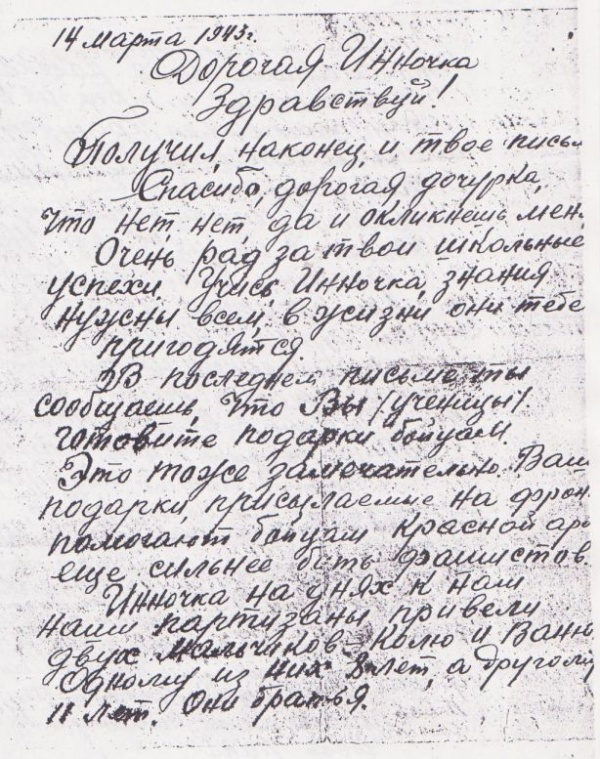 14 марта 1943г.
Дорогая Инночка
Здравствуй!
Получил, наконец, и твое письм
Спасибо, дорогая дочурка,
что нет, нет, да и окликнешь мен
Очень рад за твои школьные
успехи. Учись Инночка, знания
нужны всем, в жизни они тебе
пригодятся.
В последнем письме ты
сообщаешь, что Вы /ученицы/
готовите подарки бойцам.
Это тоже замечательно. Ваши
подарки, присылаемые на фрон
помогают бойцам Красной арм
еще сильнее бить фашистов.
Инночка на днях к нам
наши партизаны привели
двух мальчиков – Колю и Ваню
Одному из них 8 лет, а другому
11 лет. Они братья.